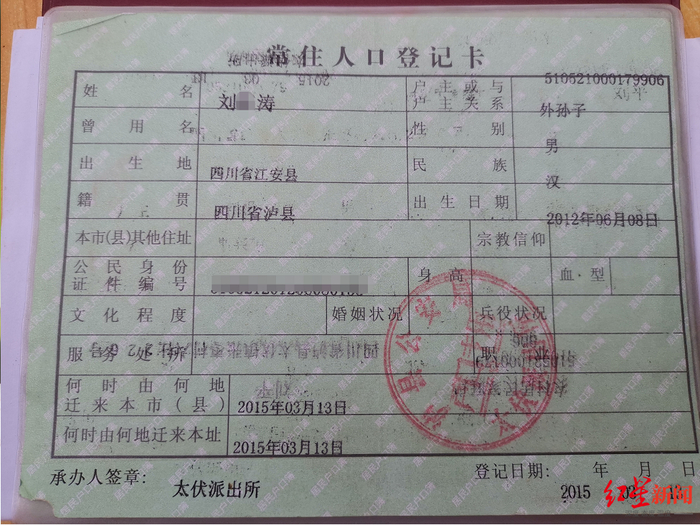 常住人口登记卡
510521000179906
姓 名 刘 涛 户主或与户主关系 外孙子
曾用名 性别 男
出生地 四川省江安县 民族 汉
籍贯 四川省泸县 出生日期 2012年06月08日
本市(县)其他住址 宗教信仰
公民身份证件编号 身高 血型
文化程度 婚姻状况 兵役状况
服务处所 职业
何时由何地迁来本市(县) 2015年03月13日
何时由何地迁来本址 2015年03月13日
承办人签章: 太伏派出所 登记日期: 年 月 日
2015 03 13
红星新闻